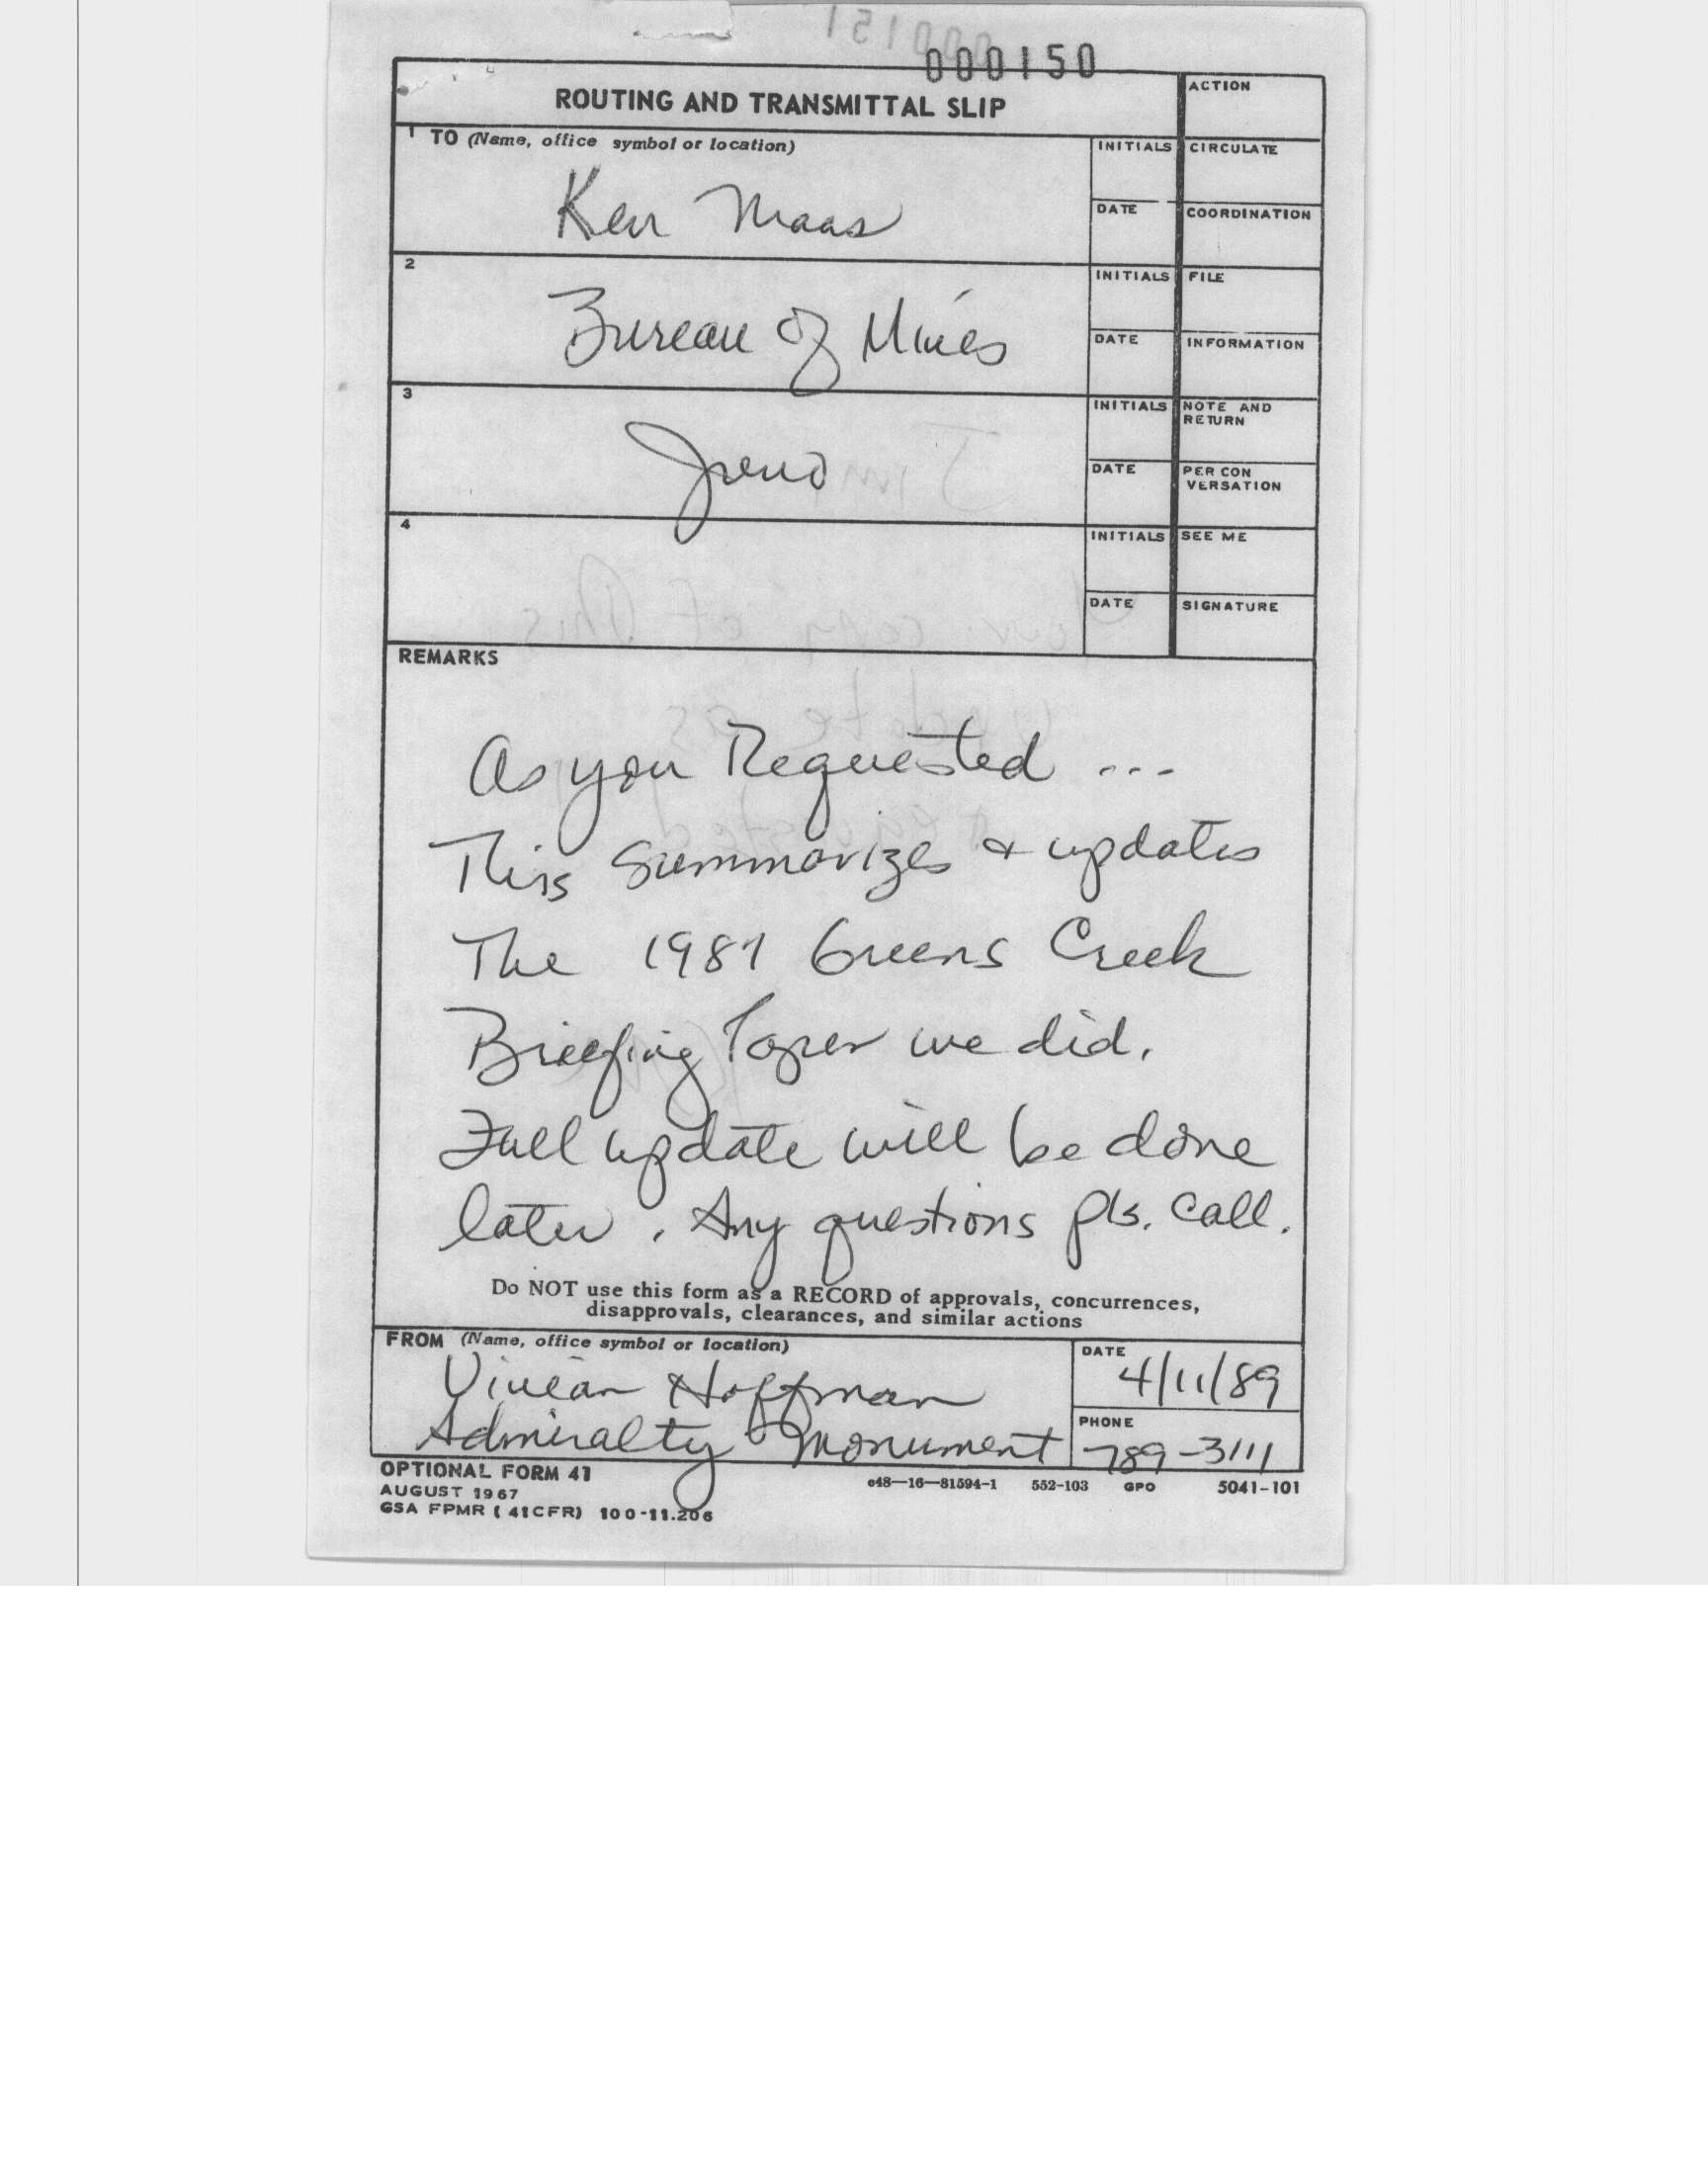 000150
ROUTING AND TRANSMITTAL SLIP
ACTION
1 TO (Name, office symbol or location)
INITIALS
CIRCULATE
Ken Maas
DATE
COORDINATION
2
INITIALS
FILE
Bureau of Mines
DATE
INFORMATION
3
INITIALS
NOTE AND
RETURN
DATE
PER CON
VERSATION
4
INITIALS
SEE ME
DATE
SIGNATURE
REMARKS
As you Requested ...
This Summarizes & updates
The 1987 Greens Creek
Briefing Paper we did.
Full update will be done
later. Any questions pls. call.
Do NOT use this form as a RECORD of approvals, concurrences,
disapprovals, clearances, and similar actions
FROM (Name, office symbol or location)
DATE
Vivian Hoffman
4/11/89
Admiralty Monument
PHONE
789-3111
OPTIONAL FORM 41
AUGUST 1967
GSA FPMR (41CFR) 100-11.206
c48—16—81594-1 552-103 GPO 5041-101